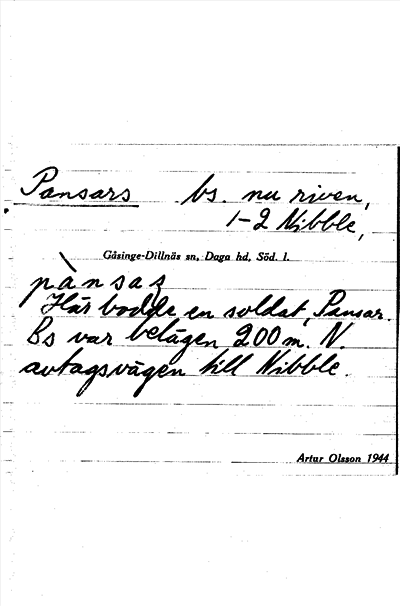 Pansars bs. nu riven,
1-2 Nibble,
Gåsinge-Dillnäs sn, Daga hd, Söd. l.
pànsaʒ
Här bodde en soldat, Pansar.
Bs var belägen 200 m. N.
avtagsvägen till Nibble.
Artur Olsson 1944